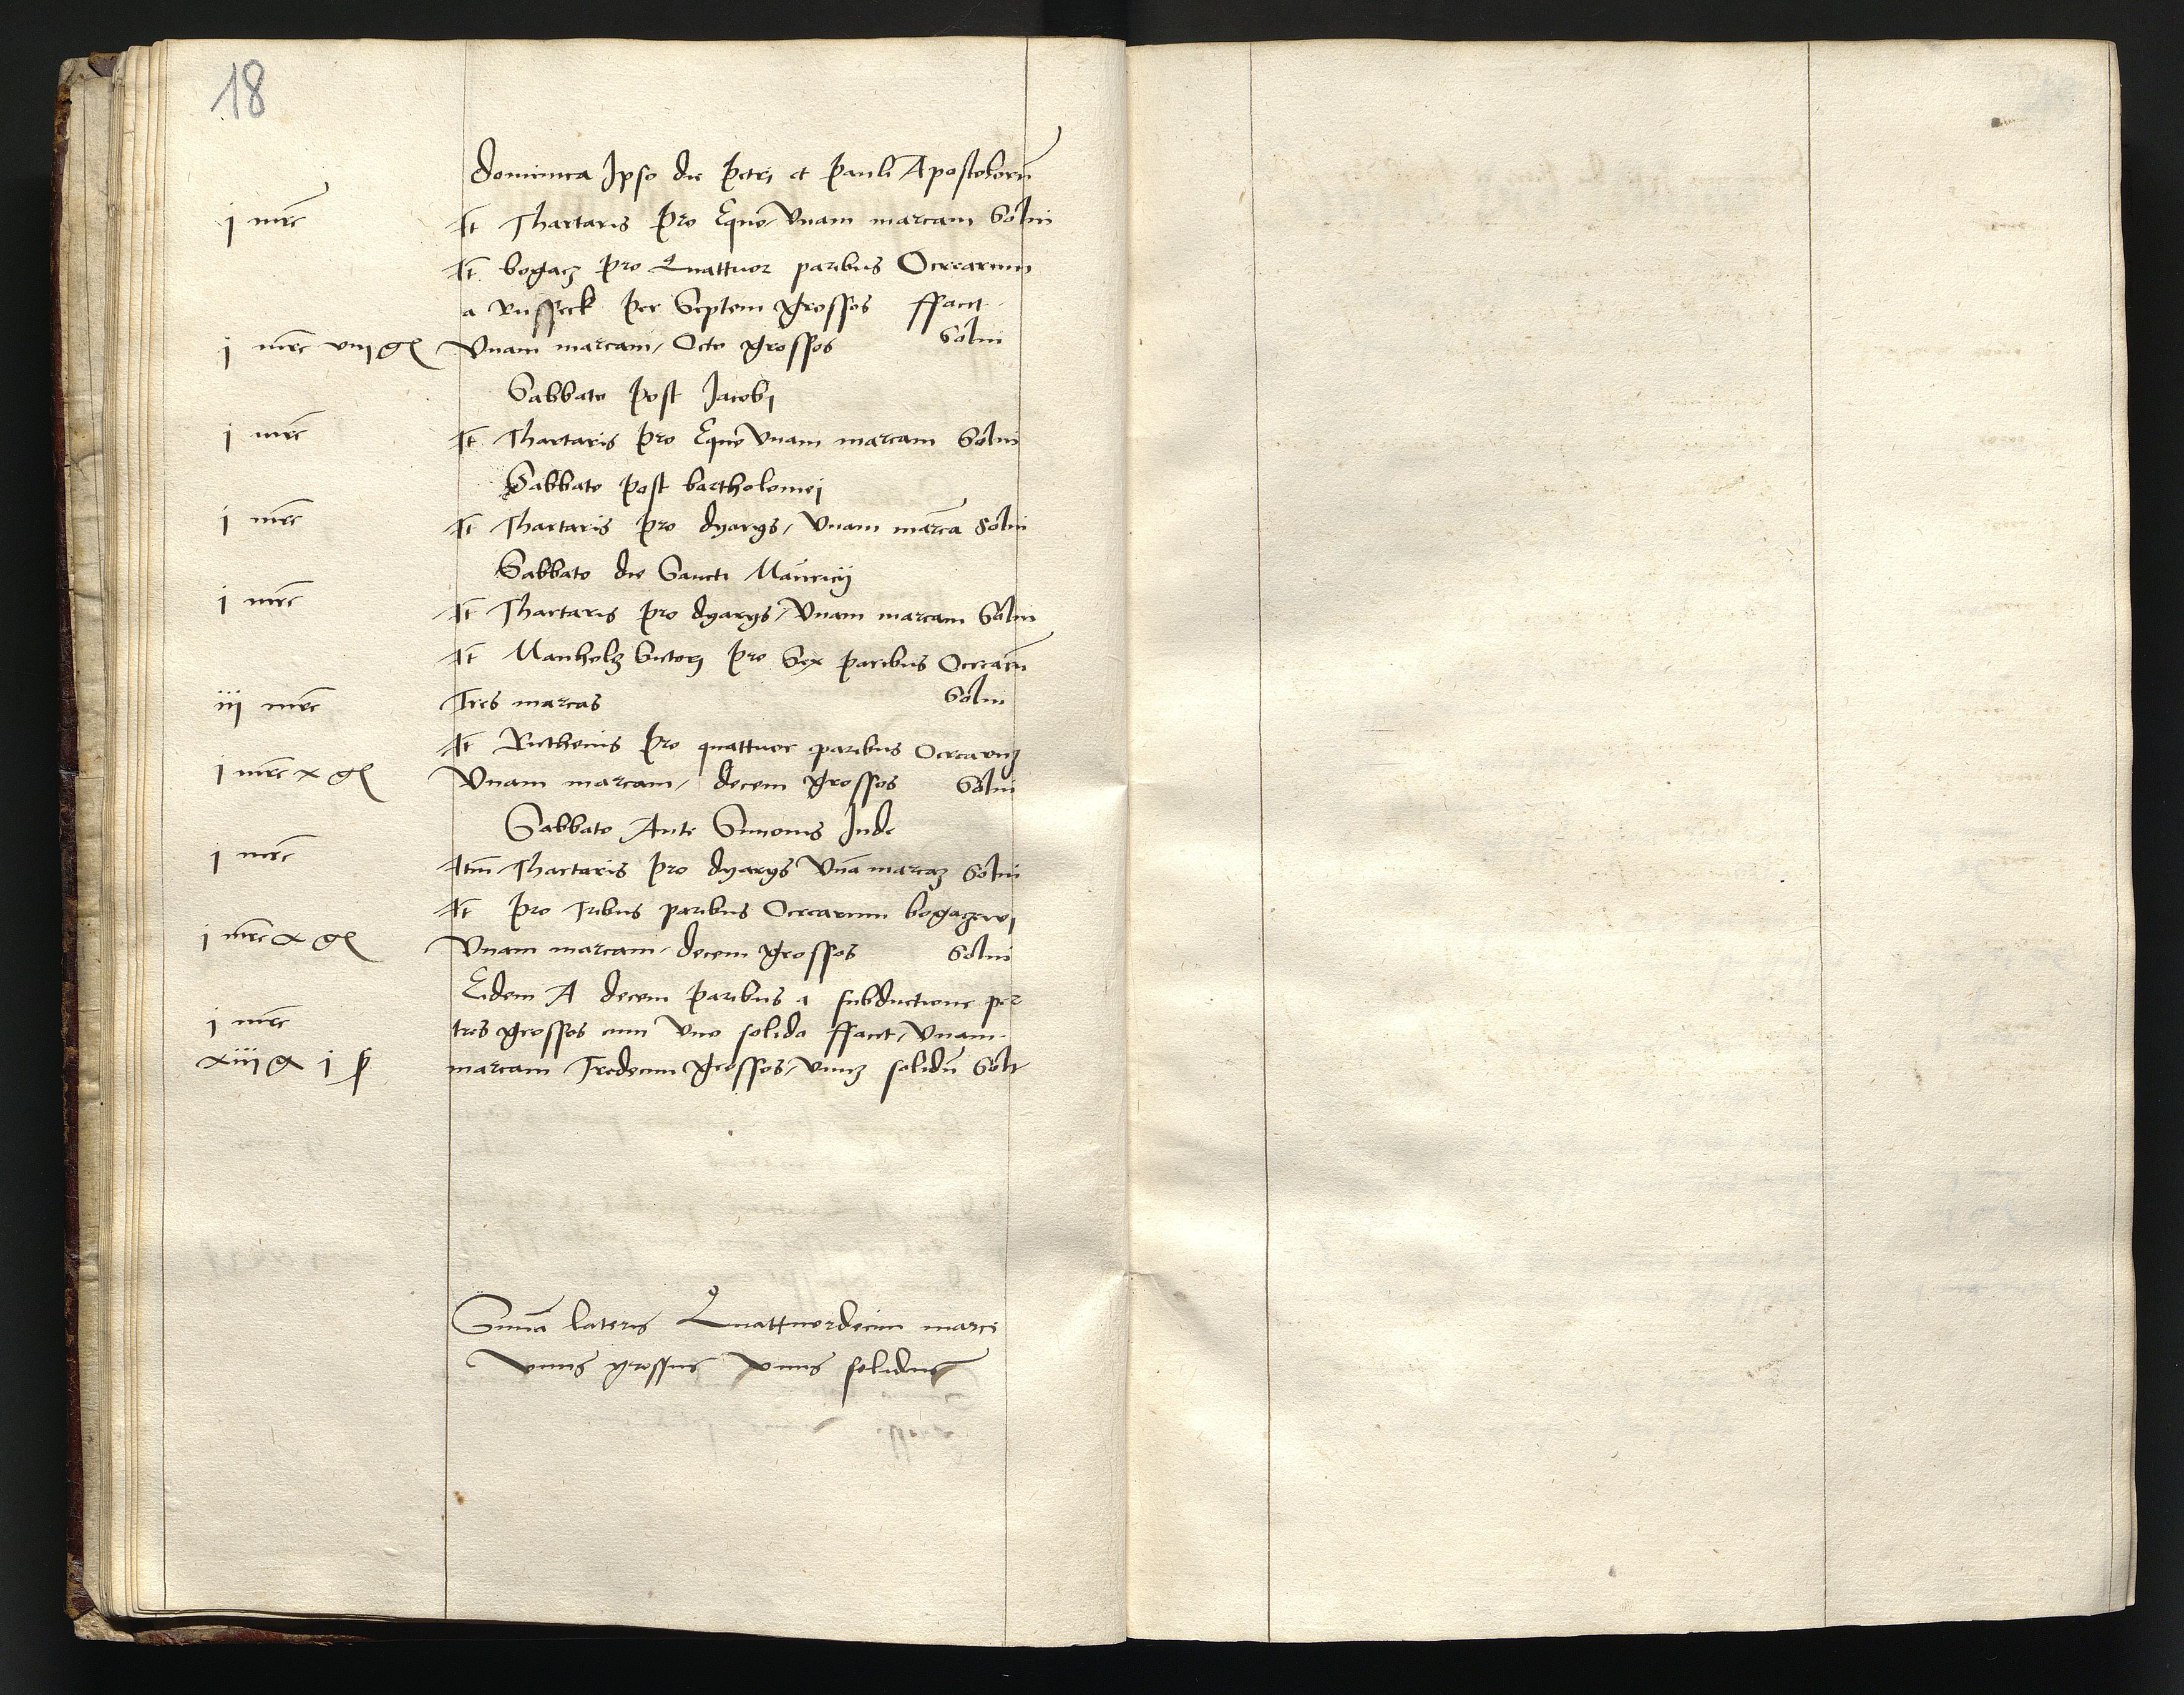 18
Dominica Ipso die Petri et Pauli Apostolorũ
j mrc̃ It Thartaris Pro Equo Vnam marcam Solui
It bogacz Pro Quattuor paribus Ocrearum
a Russeck Per Septem grossos ffacit
j mrc̃ viij gs Vnam marcam, Octo grossos Solui
Sabbato Post Jacobj
j mrc̃ It Thartaris Pro Equo Vnam marcam Solui
Sabbato Post bartholomej
j mrc̃ It Thartaris Pro dyarys, Vnam marcã Solui
Sabbato die Sancti Mauricij
j mrc̃ It Thartaris Pro dyarys, Vnam marcam Solui
It Manholz Sutorj Pro Sex Paribus Ocrearũ
iij mrc̃ Tres marcas Solui
It Ruthenis Pro quattuor paribus Ocrearuz
j mrc̃ x gs Vnam marcam, decem grossos Solui
Sabbato Ante Simonis Jude
j mrc̃ Itm̃ Thartaris Pro dyarys Vnã marcaz Solui
It Pro Tribus paribus Ocrearum bogaczowj
j mrc̃ x gs Vnam marcam, decem grossos Solui
Eidem A decem Paribus a subductione per
j mrc̃ tres grossos cum Vno solido ffacit, Vnam
xiij g j ꝑ marcam Tredecim grossos, Vnuz solidũ Solui
Summã lateris Quattuordecim marce
Vnus grossus Vnus solidus